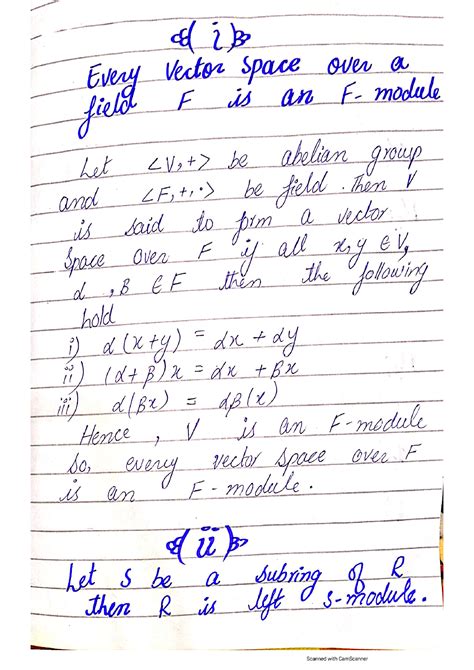 (i)
Every Vector Space over a
field F is an F-module
Let <V,+> be abelian group
and <F,+,·> be field. Then V
is said to form a vector
Space over F if all x,y ∈ V,
α, β ∈ F then the following
hold
i) α(x+y) = αx + αy
ii) (α+β)x = αx + βx
iii) α(βx) = αβ(x)
Hence, V is an F-module
So, every vector space over F
is an F-module.
(ii)
Let S be a subring of R
then R is left S-module.
Scanned with CamScanner